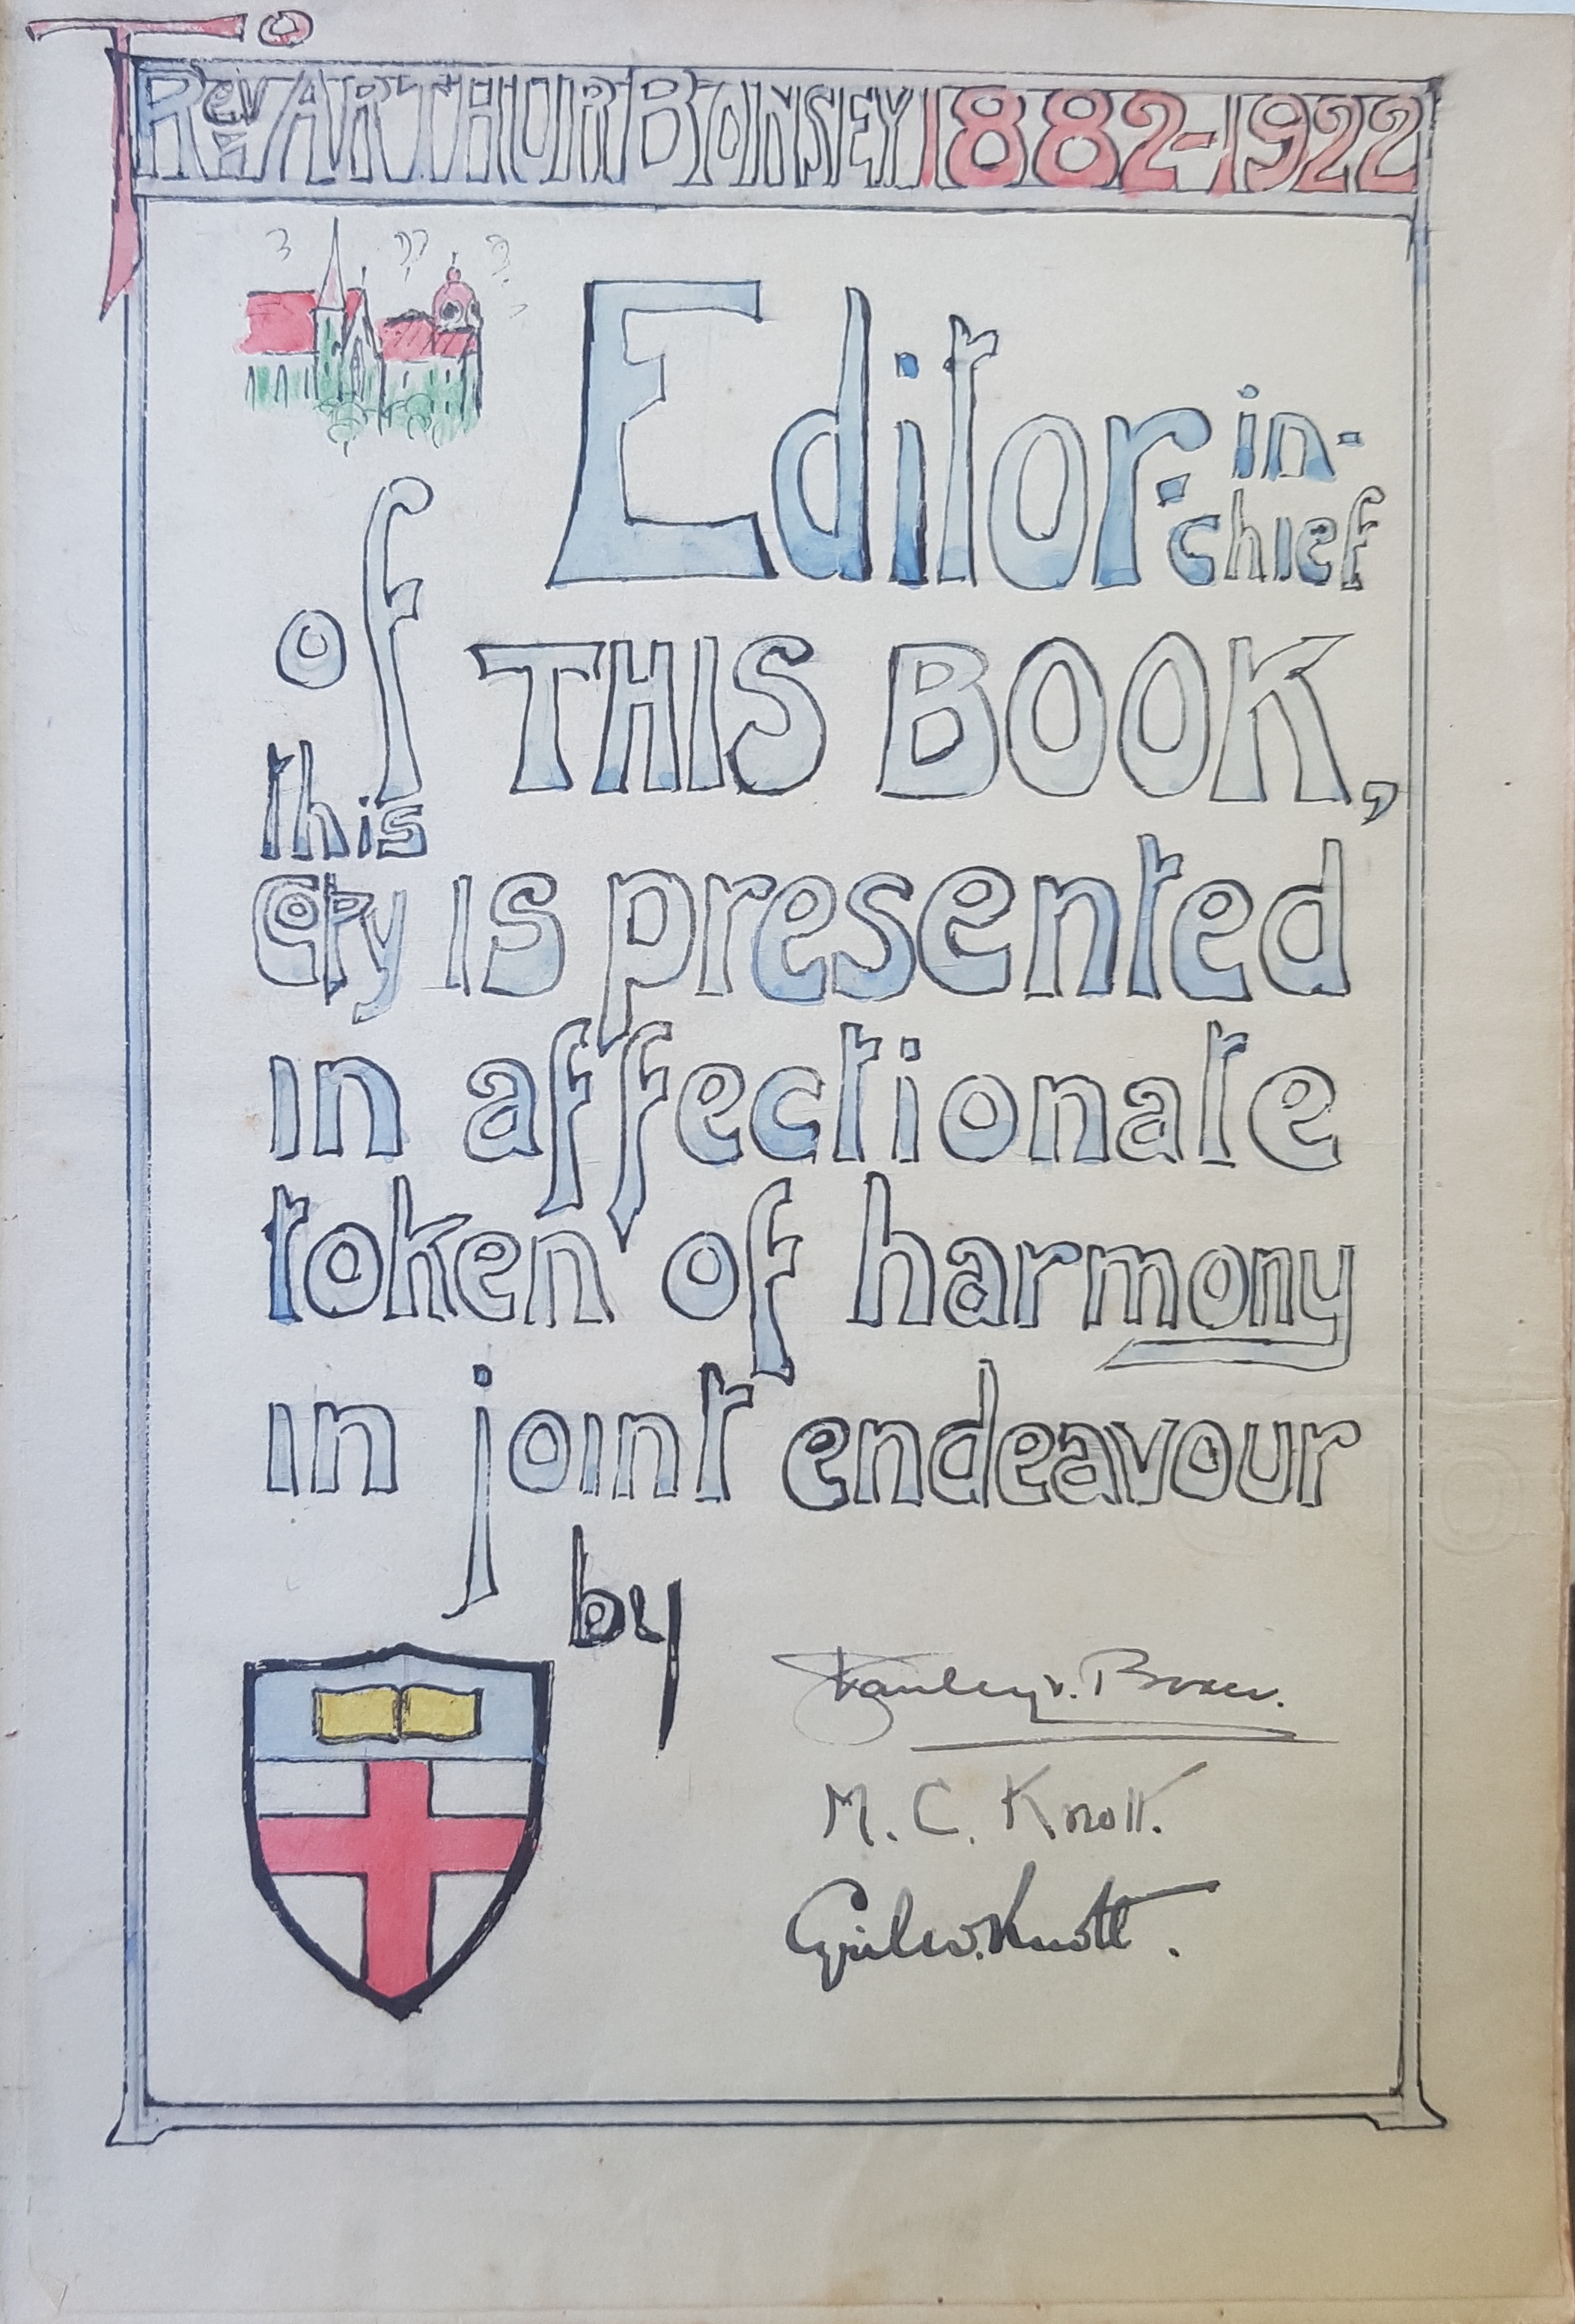 To
Rev ARTHUR BONSEY 1882-1922
Editor-in-
chief
of THIS BOOK,
this
Copy is presented
in affectionate
token of harmony
in joint endeavour
by
Stanley V.
M. C. Knott.
Cyril W. Knott.